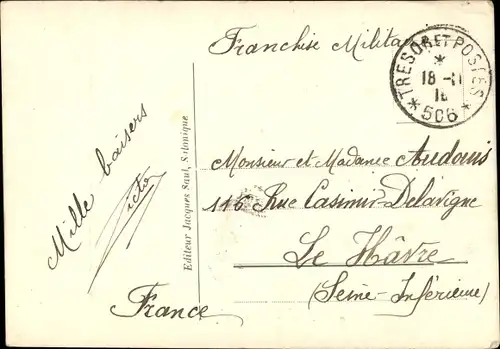 Franchise Militaire
TRESOR ET POSTES
18 -11
16
* 506 *
Mille baisers
Victor
Editeur Jacques Saul, Salonique
Monsieur et Madame Audouis
116 Rue Casimir-Delavigne
Le Hâvre
(Seine-Inférieure)
France